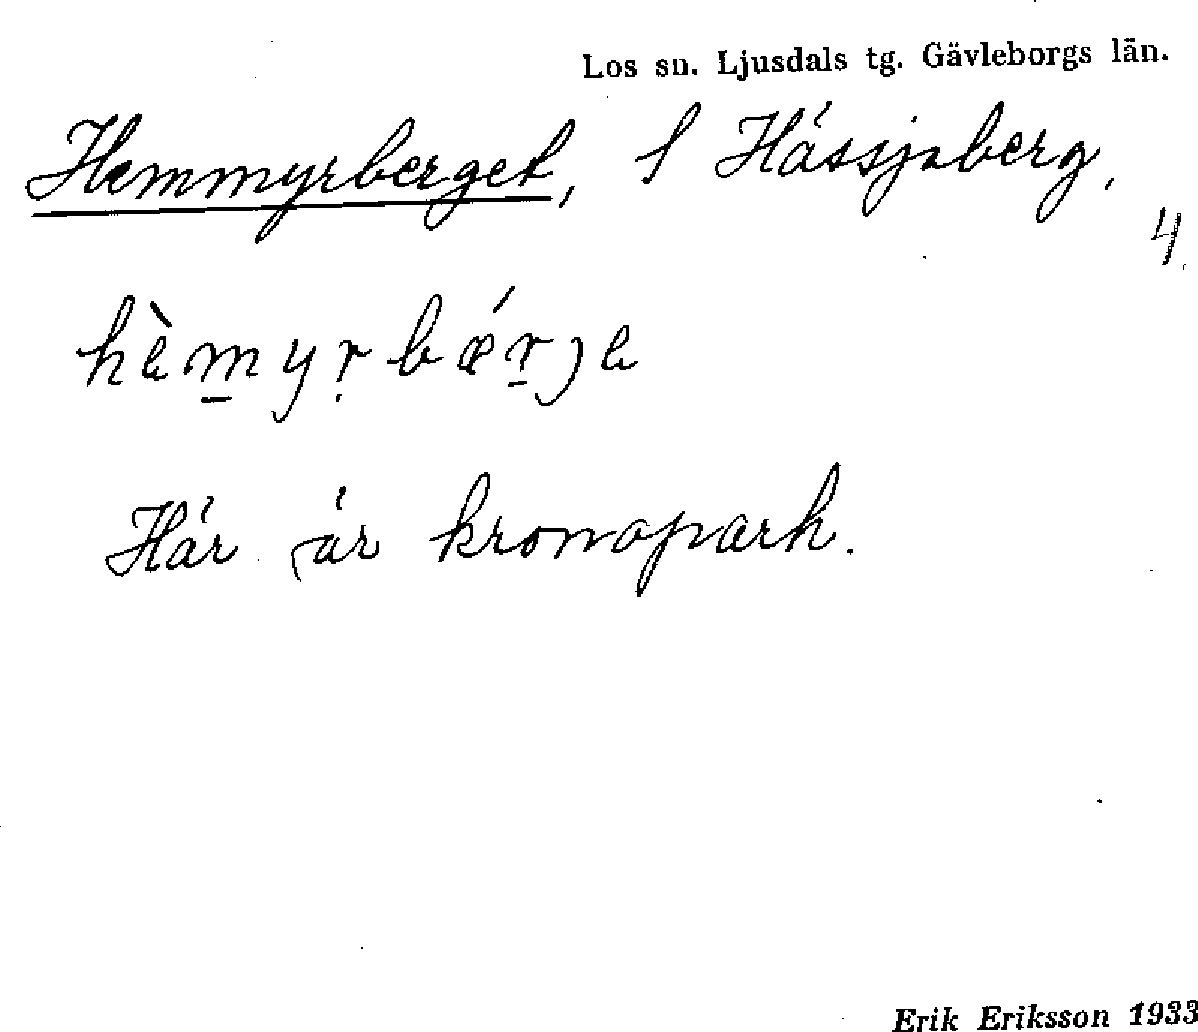 Los sn. Ljusdals tg. Gävleborgs län.
Hemmyrberget, f Hässjaberg,
4
hèm̲yṛbǽr̲je
Här är kronopark.
Erik Eriksson 1933